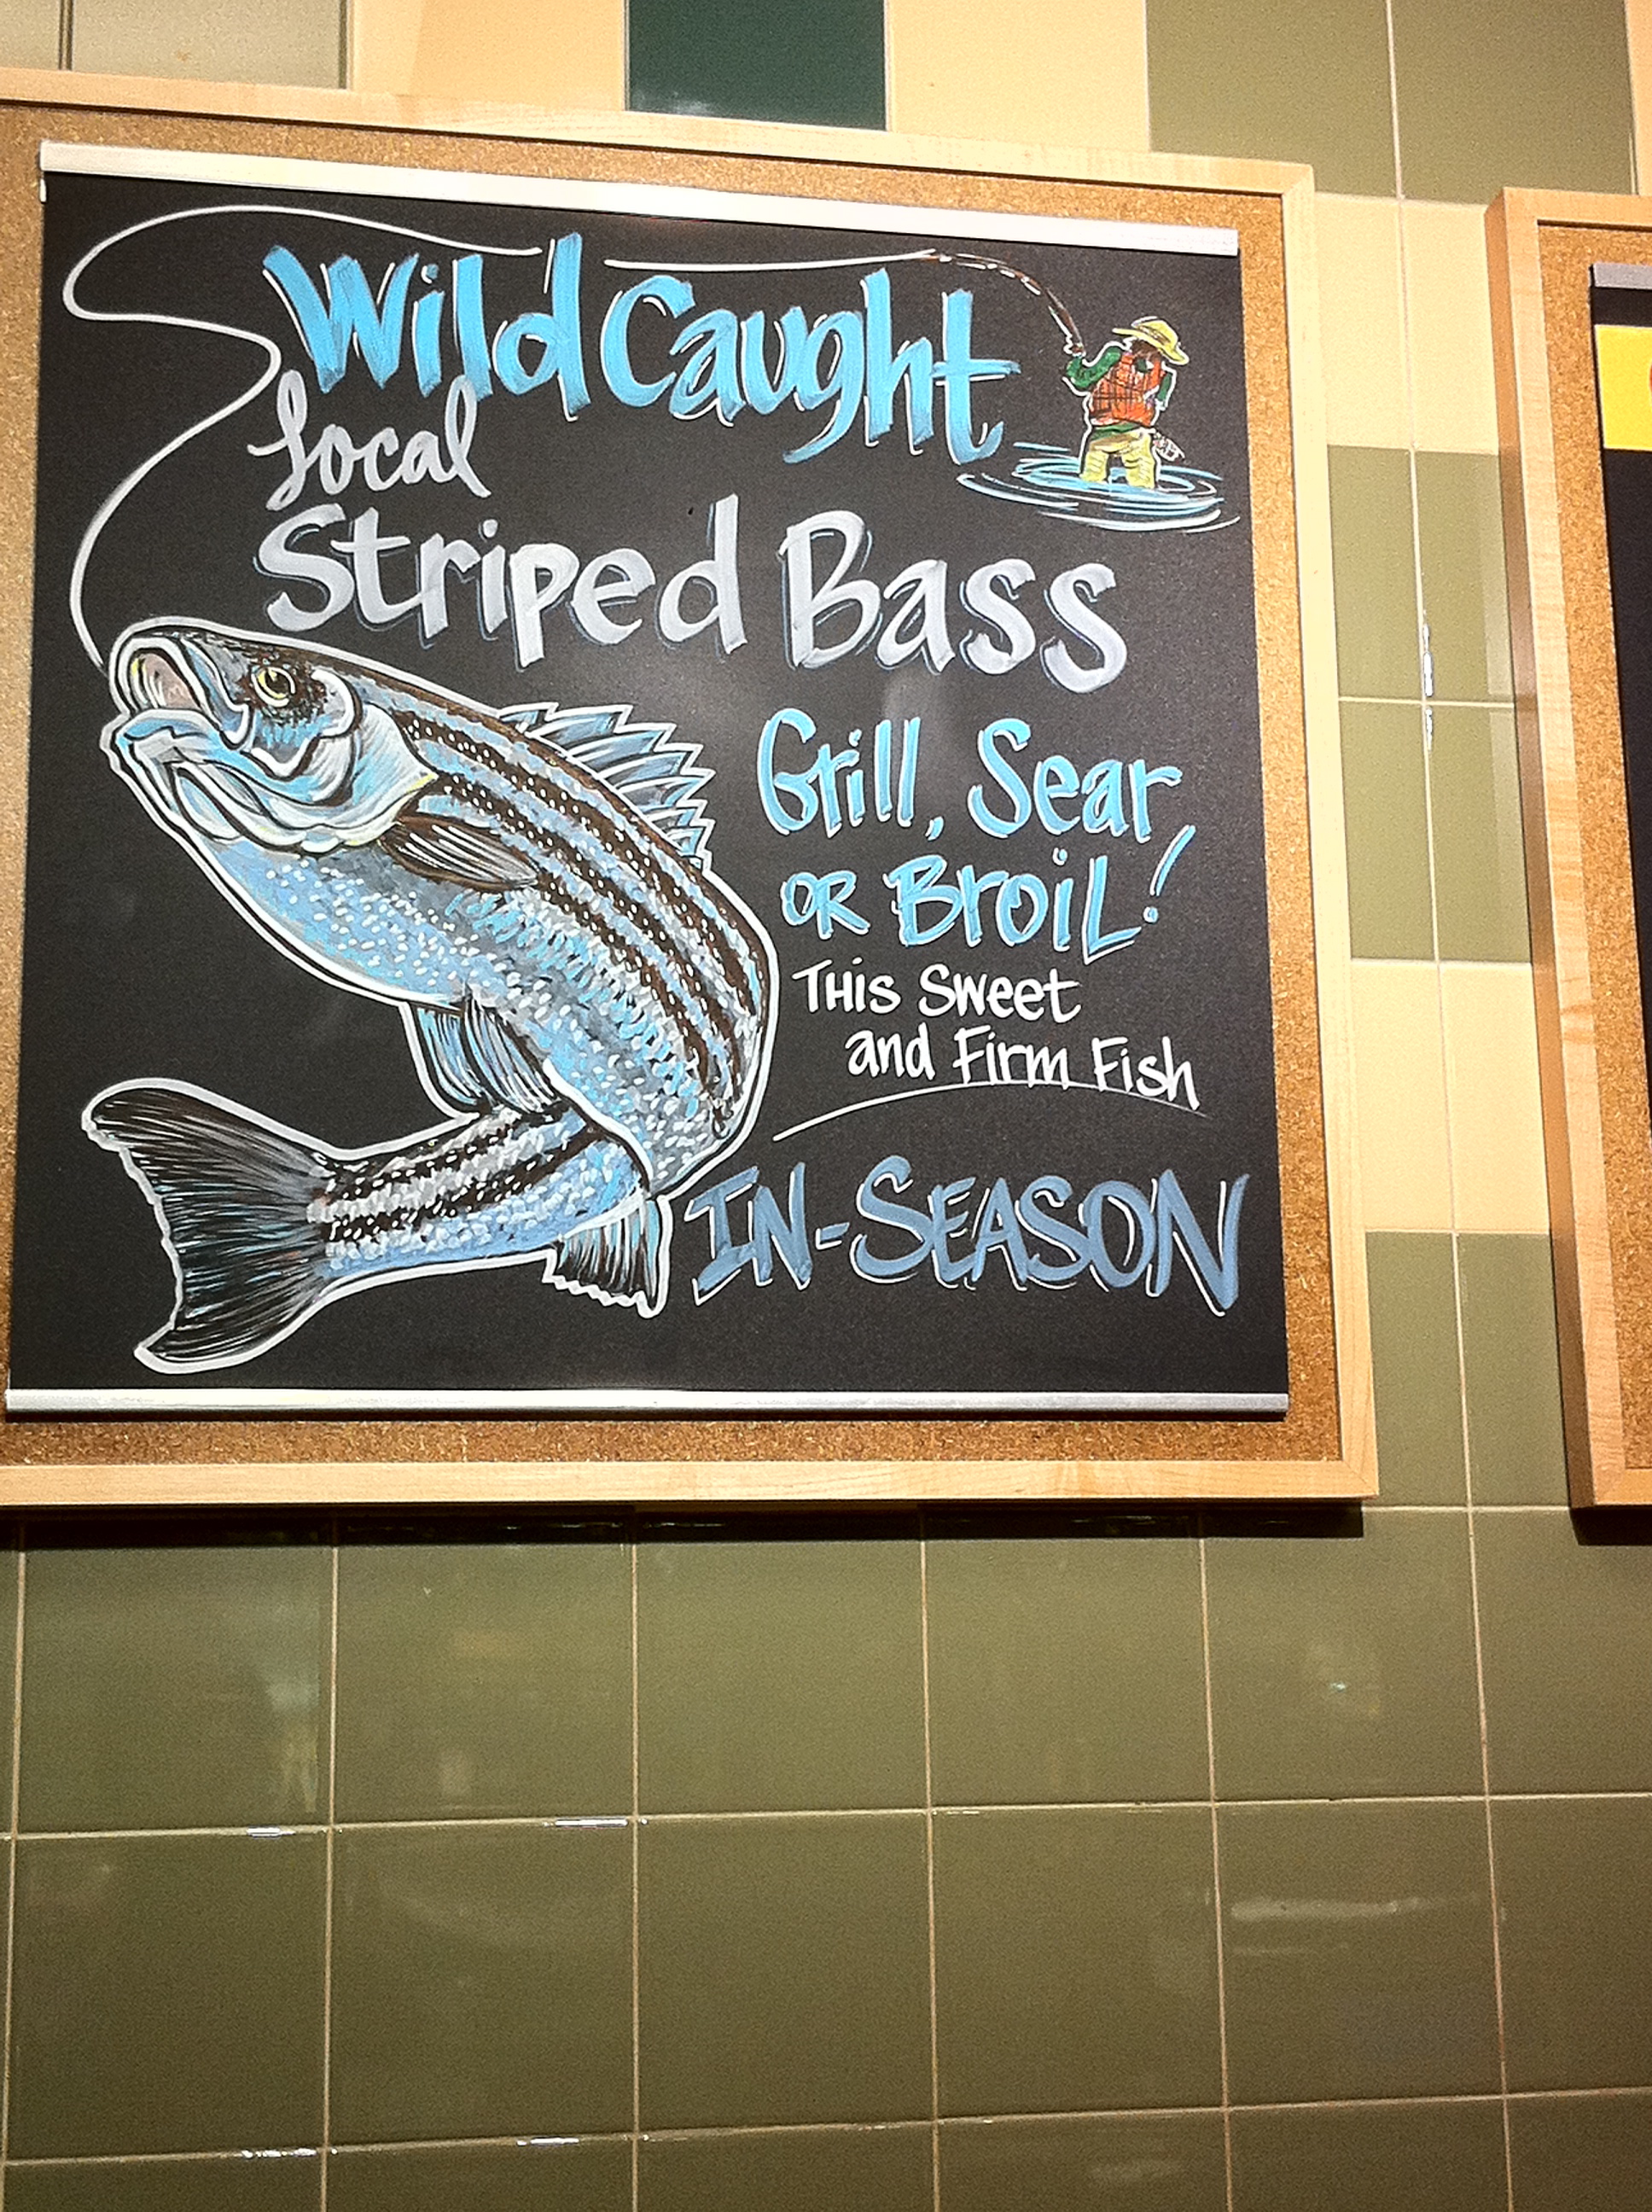 Wild Caught
Local
Striped Bass
Grill, Sear,
OR BroiL!
THis Sweet
and Firm Fish
IN-SEASON